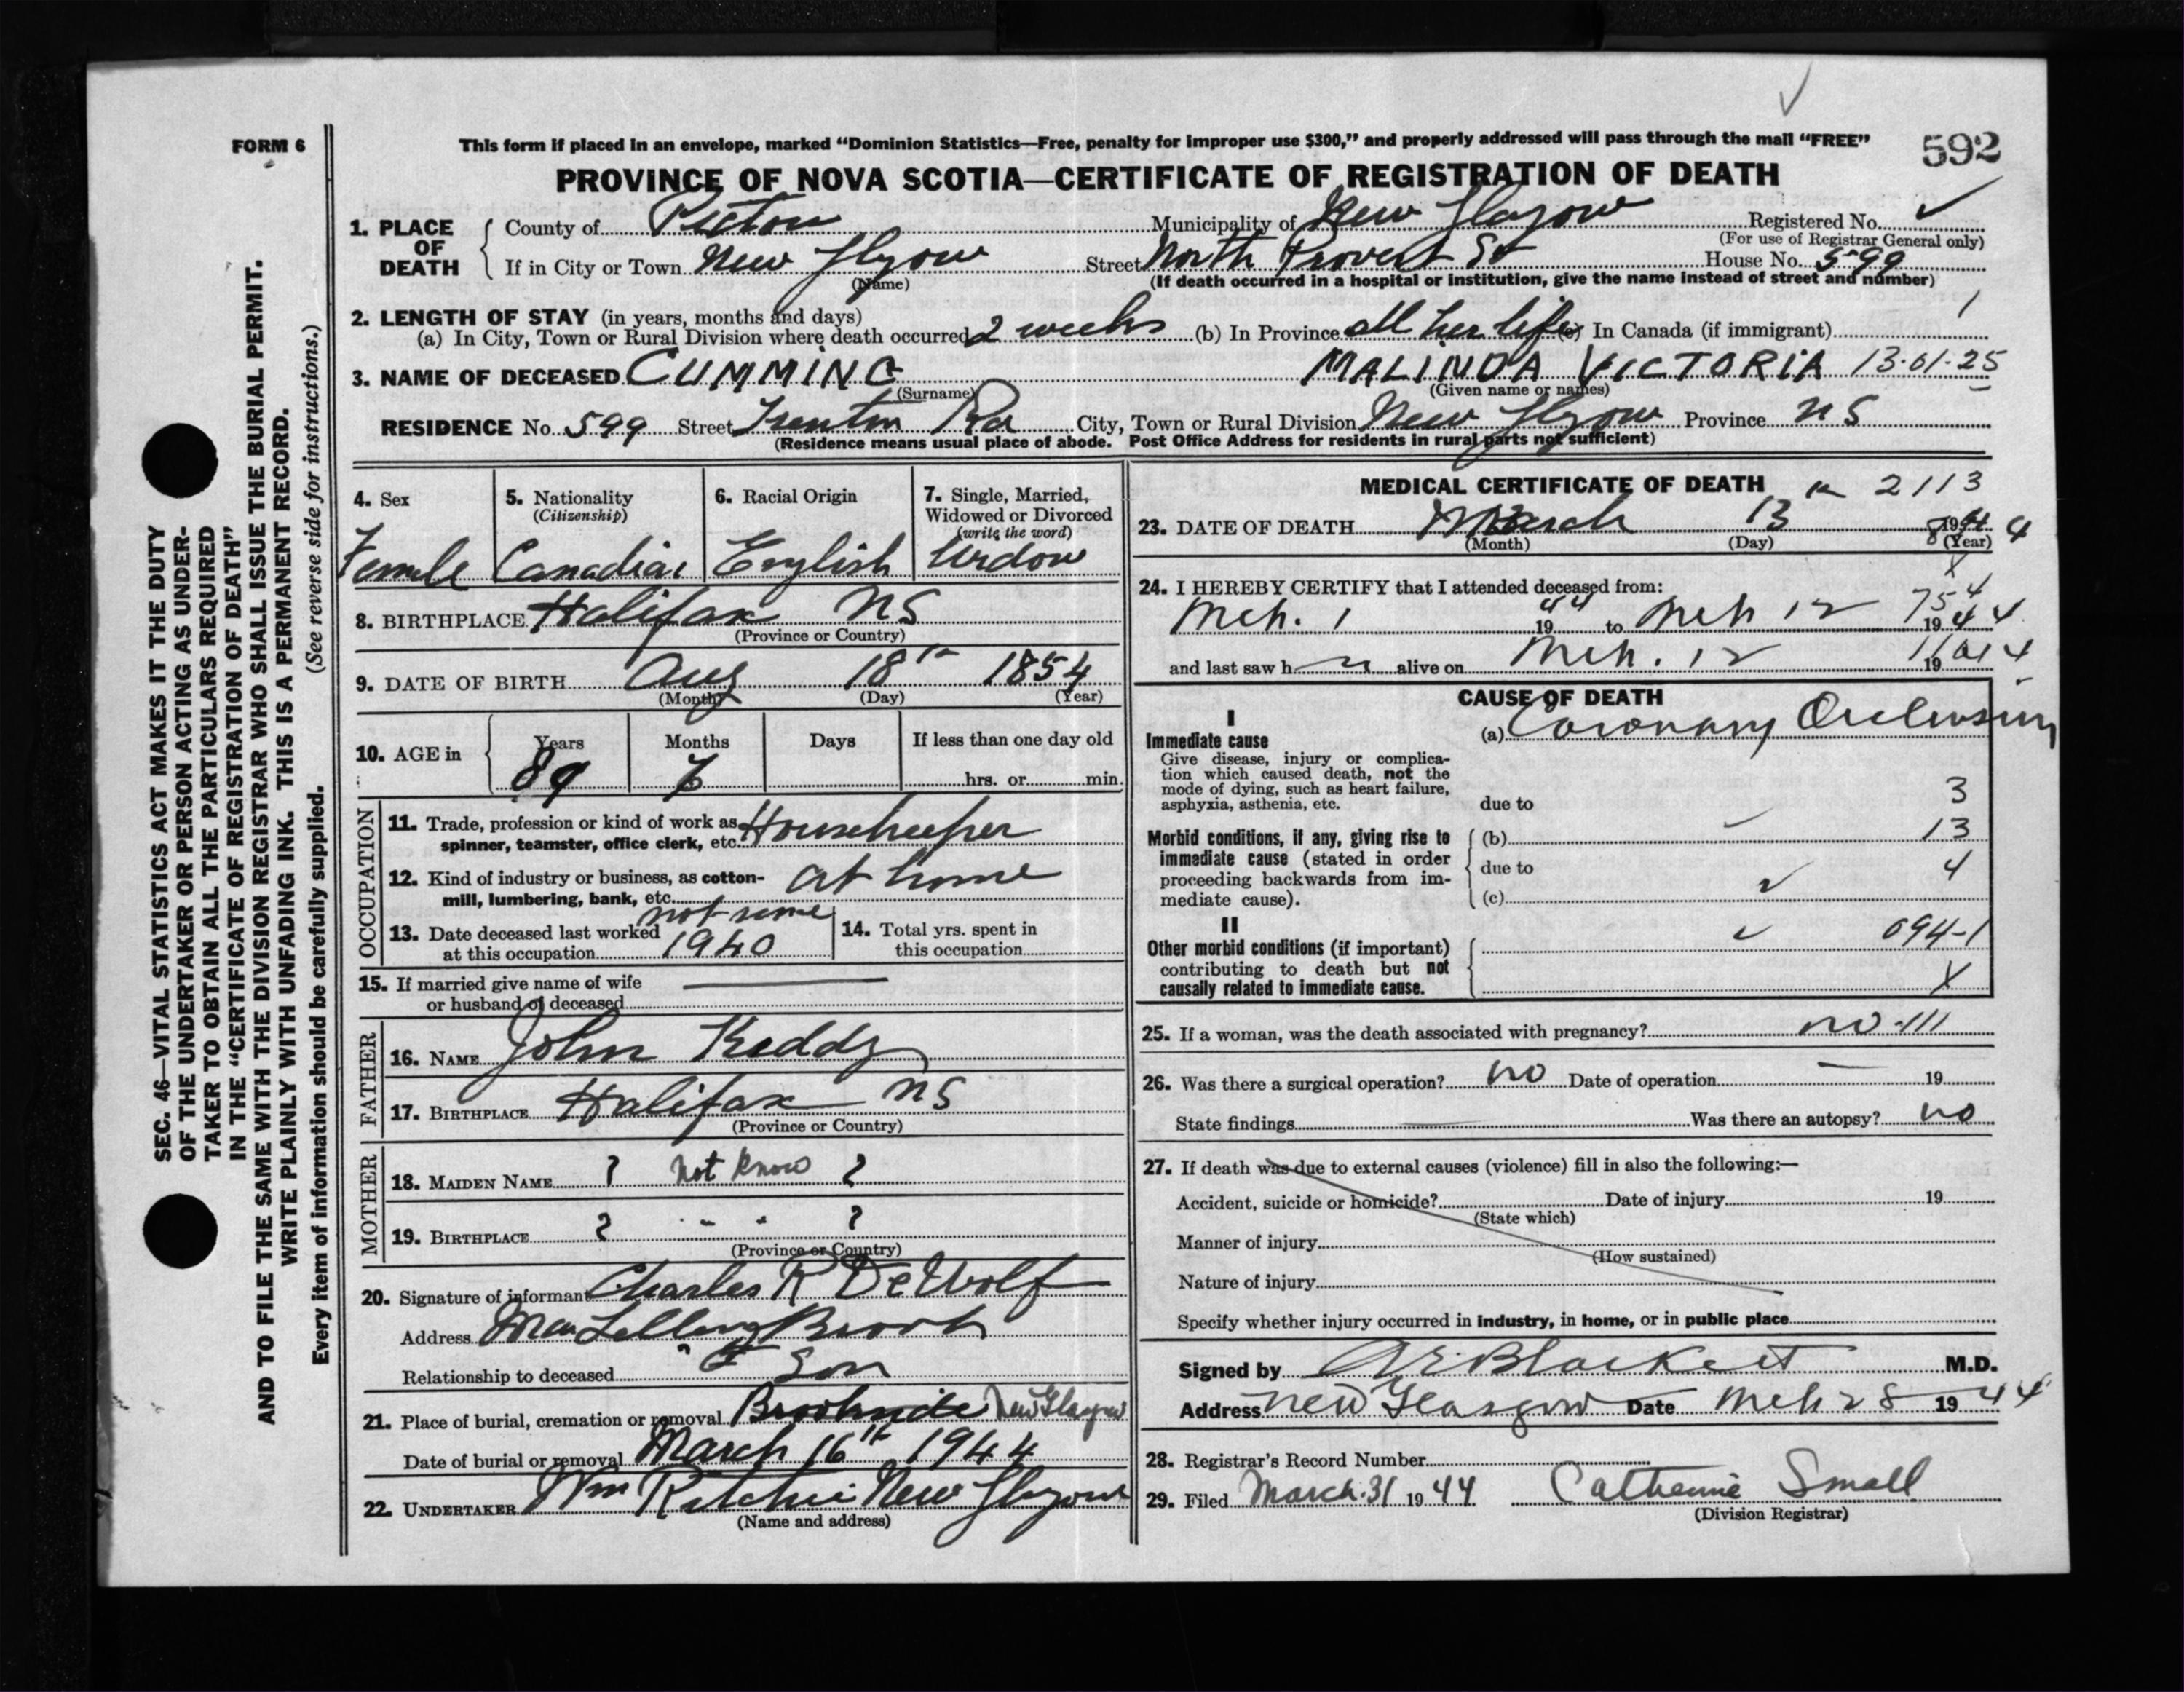 FORM 6
This form if placed in an envelope, marked “Dominion Statistics—Free, penalty for improper use $300,” and properly addressed will pass through the mail “FREE”
592
PROVINCE OF NOVA SCOTIA—CERTIFICATE OF REGISTRATION OF DEATH
1. PLACE OF DEATH County of Pictou Municipality of New Glasgow Registered No.
(For use of Registrar General only)
If in City or Town New Glasgow Street North Provost St House No. 599
(Name) (If death occurred in a hospital or institution, give the name instead of street and number)
2. LENGTH OF STAY (in years, months and days)
(a) In City, Town or Rural Division where death occurred 2 weeks (b) In Province all her life (c) In Canada (if immigrant)
3. NAME OF DECEASED CUMMING MALINDA VICTORIA 13-01-25
(Surname) (Given name or names)
RESIDENCE No. 599 Street Trenton Rd City, Town or Rural Division New Glasgow Province NS
(Residence means usual place of abode. Post Office Address for residents in rural parts not sufficient)
4. Sex 5. Nationality (Citizenship) 6. Racial Origin 7. Single, Married, Widowed or Divorced (write the word)
Female Canadian English Widow
8. BIRTHPLACE Halifax NS
(Province or Country)
9. DATE OF BIRTH Aug 18th 1854
(Month) (Day) (Year)
10. AGE in Years Months Days If less than one day old
89 hrs. or min.
OCCUPATION
11. Trade, profession or kind of work as spinner, teamster, office clerk, etc. Housekeeper
12. Kind of industry or business, as cotton-mill, lumbering, bank, etc. at home
not since
13. Date deceased last worked at this occupation 1940
14. Total yrs. spent in this occupation
15. If married give name of wife or husband of deceased
FATHER
16. NAME John Keddy
17. BIRTHPLACE Halifax NS
(Province or Country)
MOTHER
18. MAIDEN NAME ? Not Know ?
19. BIRTHPLACE ? " " " ?
(Province or Country)
20. Signature of informant Charles R DeWolf
Address MacLellans Brook
Relationship to deceased Son
21. Place of burial, cremation or removal Brookside New Glasgow
Date of burial or removal March 16th 1944
22. UNDERTAKER Wm Ritchie New Glasgow
(Name and address)
MEDICAL CERTIFICATE OF DEATH 2113
23. DATE OF DEATH March 13 1944
(Month) (Day) (Year)
24. I HEREBY CERTIFY that I attended deceased from:
Mch. 1 1944 to Mch 12 1944
754
and last saw h er alive on Mch. 12 1944
CAUSE OF DEATH
I
Immediate cause (a) Coronary Occlusion
Give disease, injury or complication which caused death, not the mode of dying, such as heart failure, asphyxia, asthenia, etc.
due to 3
Morbid conditions, if any, giving rise to immediate cause (stated in order proceeding backwards from immediate cause).
(b) 13
due to 4
(c)
II
Other morbid conditions (if important) contributing to death but not causally related to immediate cause.
094-1
X
25. If a woman, was the death associated with pregnancy? no
26. Was there a surgical operation? no Date of operation 19
State findings Was there an autopsy? no
27. If death was due to external causes (violence) fill in also the following:—
Accident, suicide or homicide? Date of injury 19
(State which)
Manner of injury
(How sustained)
Nature of injury
Specify whether injury occurred in industry, in home, or in public place
Signed by A E Blackett M.D.
Address New Glasgow Date Mch 28 1944
28. Registrar's Record Number
29. Filed March 31 1944 Catherine Small
(Division Registrar)
SEC. 46—VITAL STATISTICS ACT MAKES IT THE DUTY
OF THE UNDERTAKER OR PERSON ACTING AS UNDER-
TAKER TO OBTAIN ALL THE PARTICULARS REQUIRED
IN THE “CERTIFICATE OF REGISTRATION OF DEATH”
AND TO FILE THE SAME WITH THE DIVISION REGISTRAR WHO SHALL ISSUE THE BURIAL PERMIT.
WRITE PLAINLY WITH UNFADING INK. THIS IS A PERMANENT RECORD.
Every item of information should be carefully supplied. (See reverse side for instructions.)